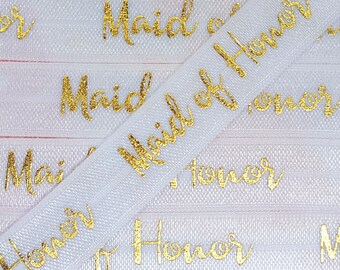 Maid of
Maid of Honor
Maid
Maid Honor
Honor Honor